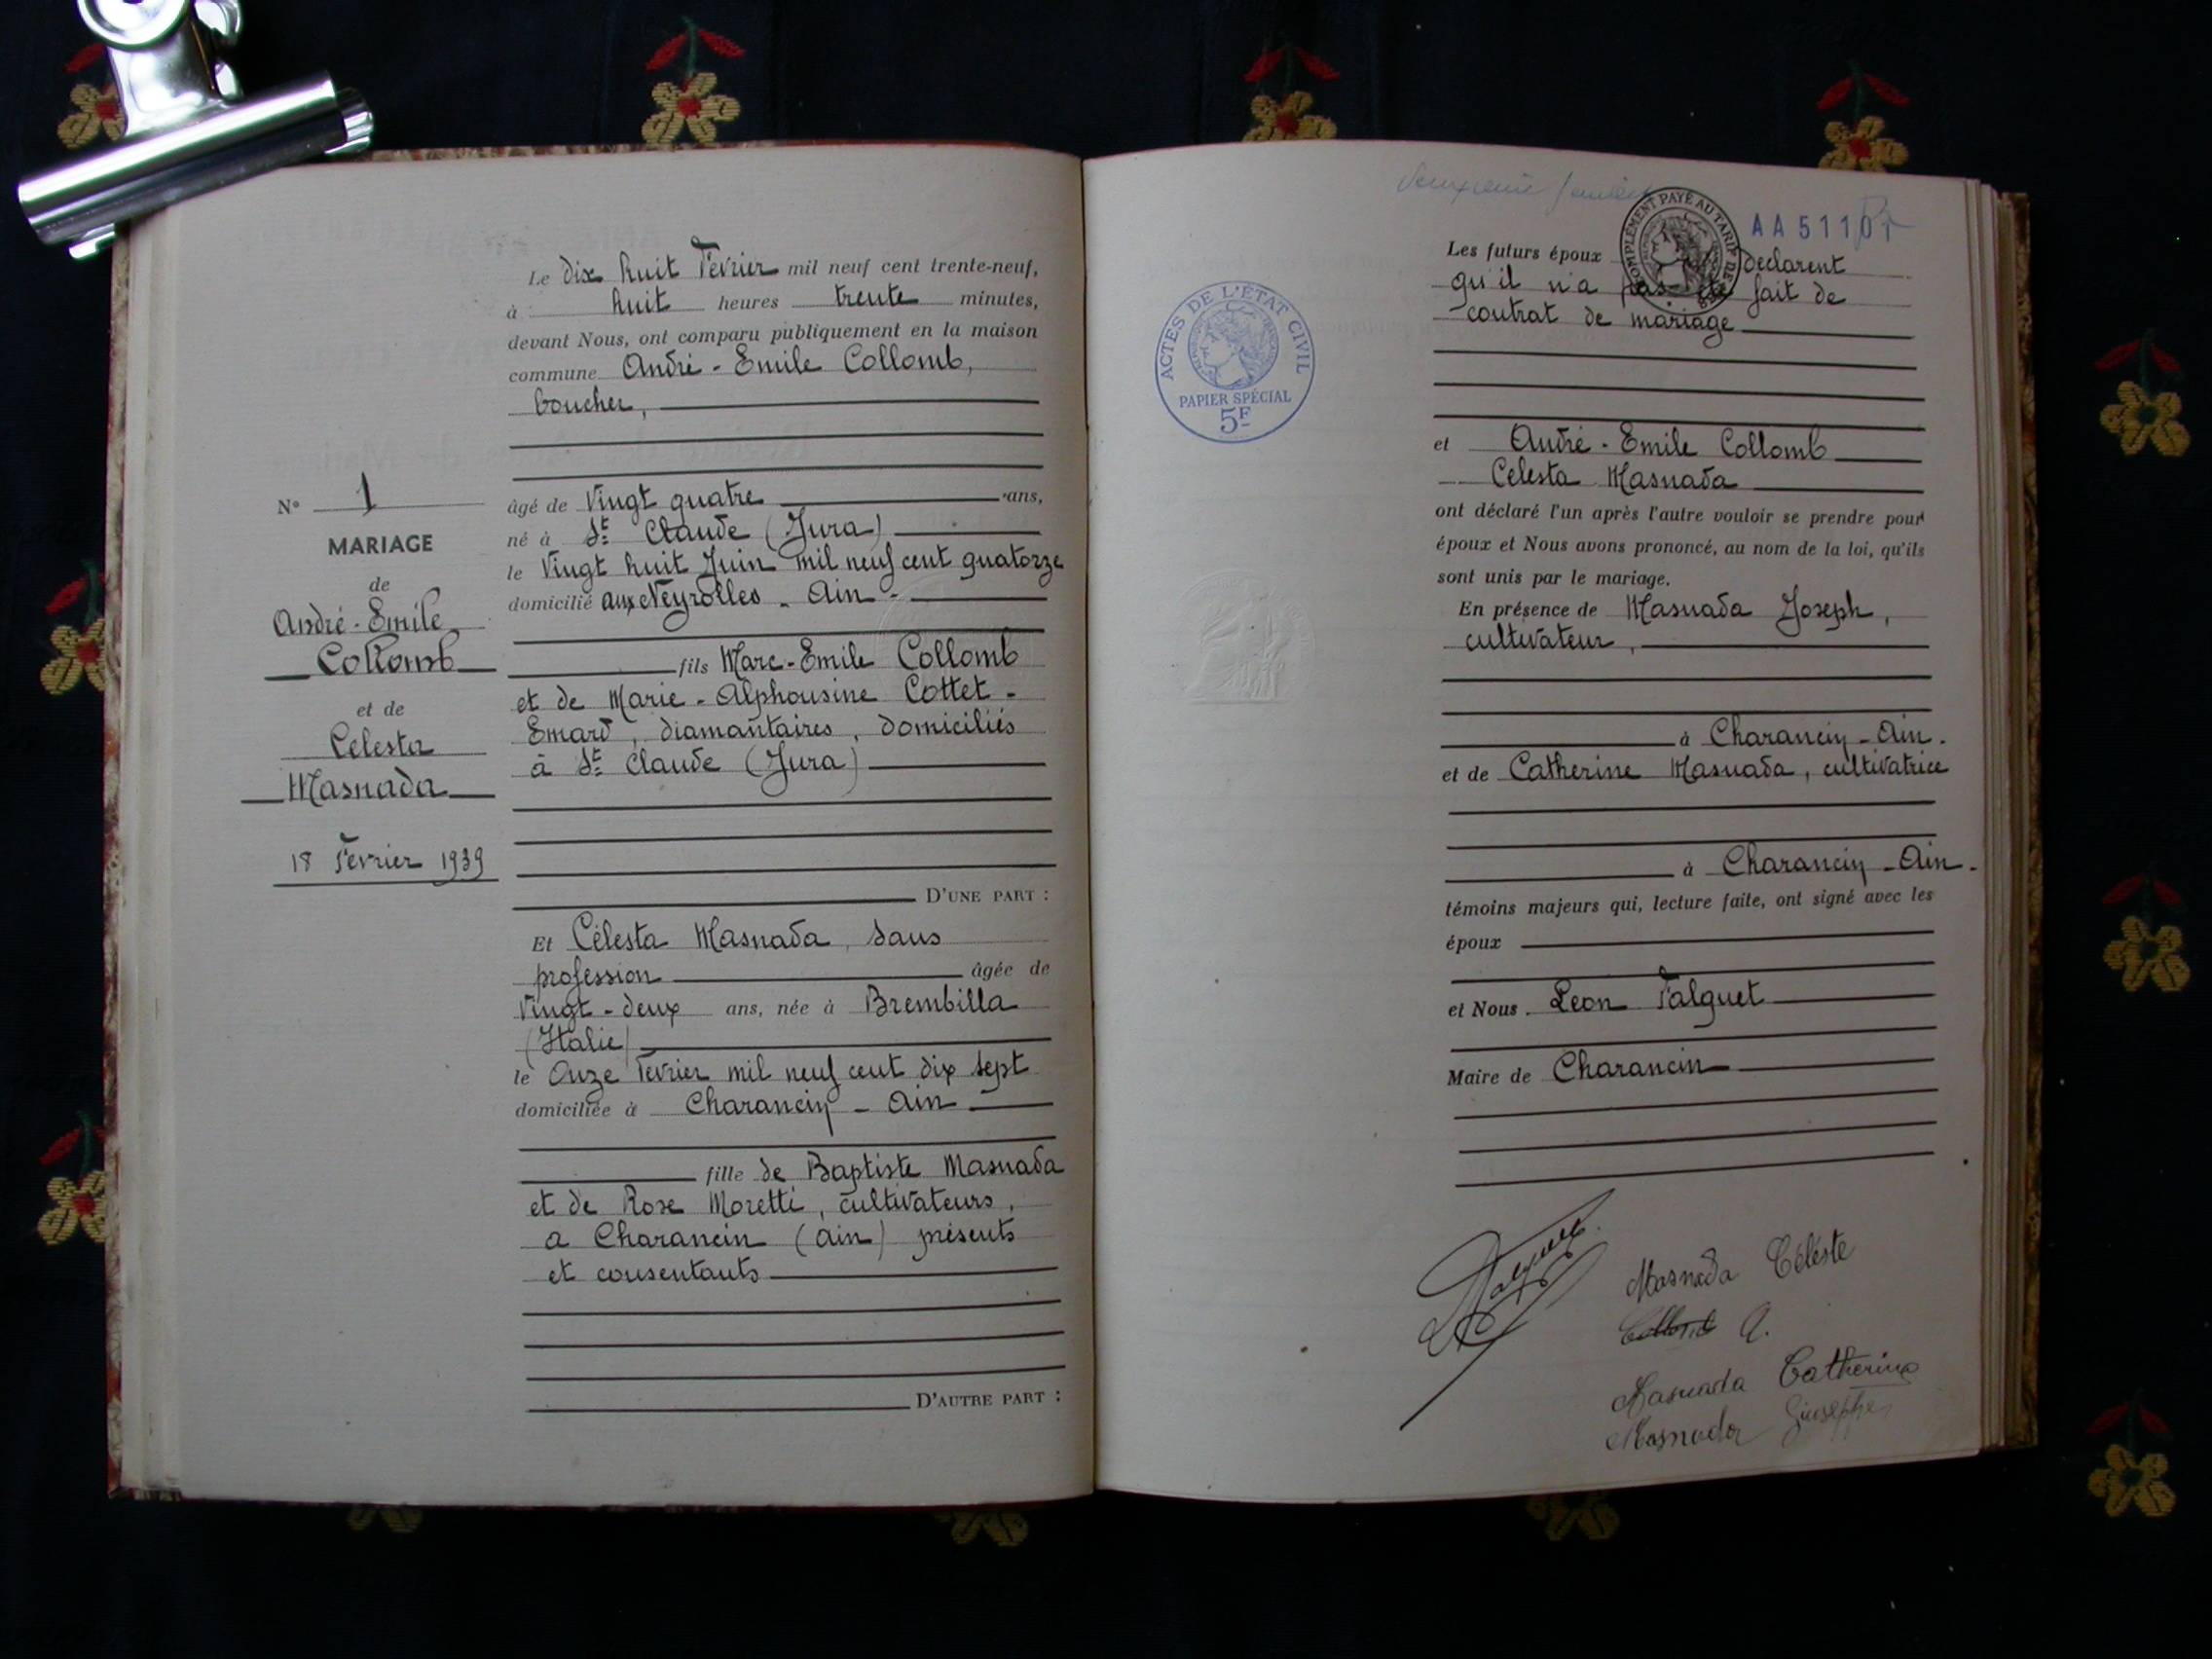 Le dix huit Fevrier mil neuf cent trente-neuf,
à huit heures trente minutes,
devant Nous, ont comparu publiquement en la maison
commune André-Emile Collomb,
boucher,
âgé de Vingt quatre ans,
né à St Claude (Jura)
le Vingt huit Juin mil neuf cent quatorze
domicilié aux Neyrolles - Ain -
fils Marc-Emile Collomb
et de Marie-Alphonsine Cottet-
Emard, diamantaires, domiciliés
à St Claude (Jura)
D'UNE PART :
N° 1
MARIAGE
de
André-Emile
Collomb
et de
Celesta
Masnada
18 Fevrier 1939
Et Célesta Masnada, sans
profession âgée de
Vingt-deux ans, née à Brembilla
(Italie)
le Onze Fevrier mil neuf cent dix sept
domiciliée à Charancin - Ain -
fille de Baptiste Masnada
et de Rose Moretti, cultivateurs,
a Charancin (Ain) présents
et consentants
D'AUTRE PART :
ACTES DE L'ÉTAT CIVIL
PAPIER SPÉCIAL
5F
COMPLÉMENT PAYÉ AU TARIF DE
AA51101
Les futurs époux declarent
qu'il n'a pas été fait de
contrat de mariage
et André-Emile Collomb
Celesta Masnada
ont déclaré l'un après l'autre vouloir se prendre pour
époux et Nous avons prononcé, au nom de la loi, qu'ils
sont unis par le mariage.
En présence de Masnada Joseph,
cultivateur,
à Charancin - Ain.
et de Catherine Masnada, cultivatrice
à Charancin - Ain.
témoins majeurs qui, lecture faite, ont signé avec les
époux
et Nous. Leon Falguet
Maire de Charancin
Masnada Céleste
Collomb A.
Masnada Catherina
Masnada Giuseppe